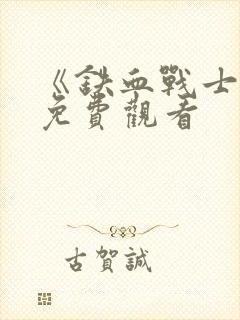 《鉄血戰士
免費觀看
古賀誠